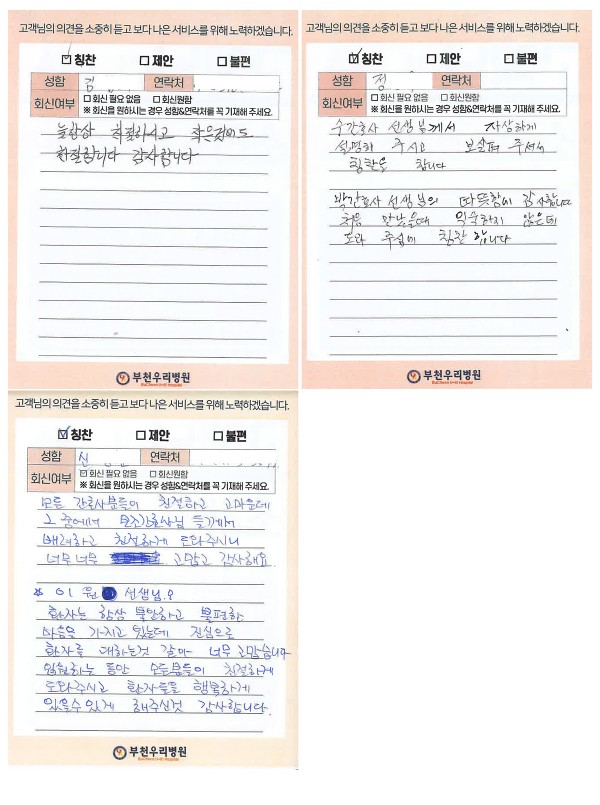 고객님의 의견을 소중히 듣고 보다 나은 서비스를 위해 노력하겠습니다.
☑ 칭찬 □ 제안 □ 불편
성함 김 연락처
회신여부 □ 회신 필요 없음 □ 회신원함
※ 회신을 원하시는 경우 성함&연락처를 꼭 기재해 주세요.
늘항상 친절하시고 작은것이도
친절합니다 감사합니다
부천우리병원
고객님의 의견을 소중히 듣고 보다 나은 서비스를 위해 노력하겠습니다.
☑ 칭찬 □ 제안 □ 불편
성함 정 연락처
회신여부 □ 회신 필요 없음 □ 회신원함
※ 회신을 원하시는 경우 성함&연락처를 꼭 기재해 주세요.
수간호사 선생님께서 자상하게
설명해 주시고 보살펴 주셔서
칭찬을 합니다
박간호사 선생님의 따뜻함에 감사합니다
처음 만났을때 익숙하지 않은데
도와 주심에 칭찬 합니다
부천우리병원
고객님의 의견을 소중히 듣고 보다 나은 서비스를 위해 노력하겠습니다.
☑ 칭찬 □ 제안 □ 불편
성함 신 연락처
회신여부 ☑ 회신 필요 없음 □ 회신원함
※ 회신을 원하시는 경우 성함&연락처를 꼭 기재해 주세요.
모든 간호사분들이 친절하고 고마운데
그 중에서 보조간호사님 들께서
배려하고 친절하게 도와주시니
너무너무 고맙고 감사해요.
※ 이 원 선생님.?
환자는 항상 불안하고 불편한
마음을 가지고 있는데 진심으로
환자를 대하는것 같아 너무 고맙습니다
입원하는 동안 모든분들이 친절하게
도와주시고 환자들을 행복하게
있을수있게 해주신것 감사합니다.
부천우리병원